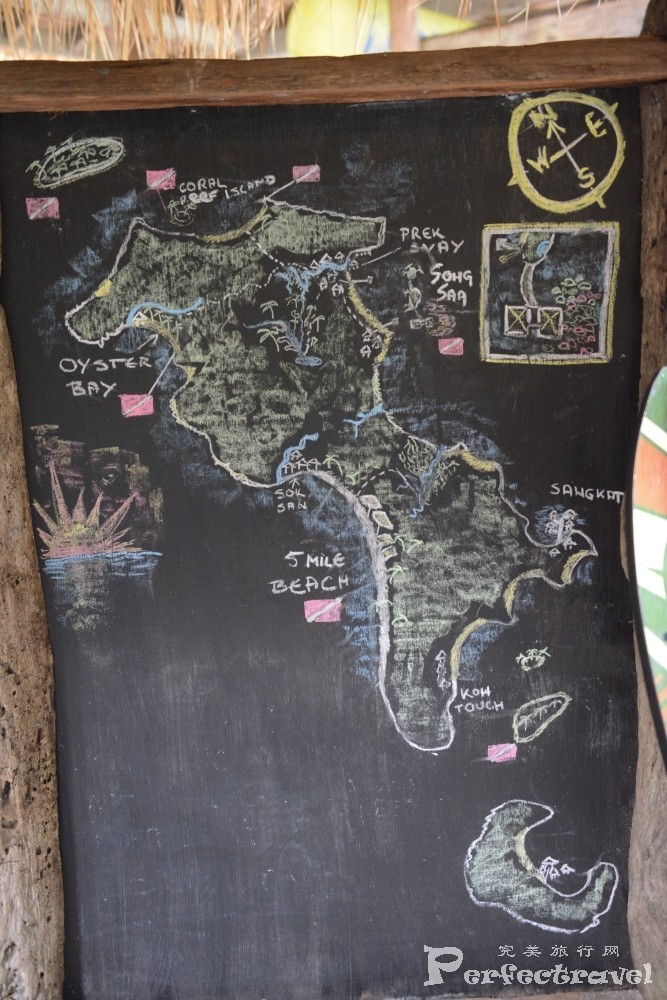 N
E
W
S
CORAL
REEF ISLAND
PREK
SVAY
SONG
SAA
OYSTER
BAY
SANGKAT
SOK
SAN
5 MILE
BEACH
KOH
TOUCH
完美旅行网
Perfectravel